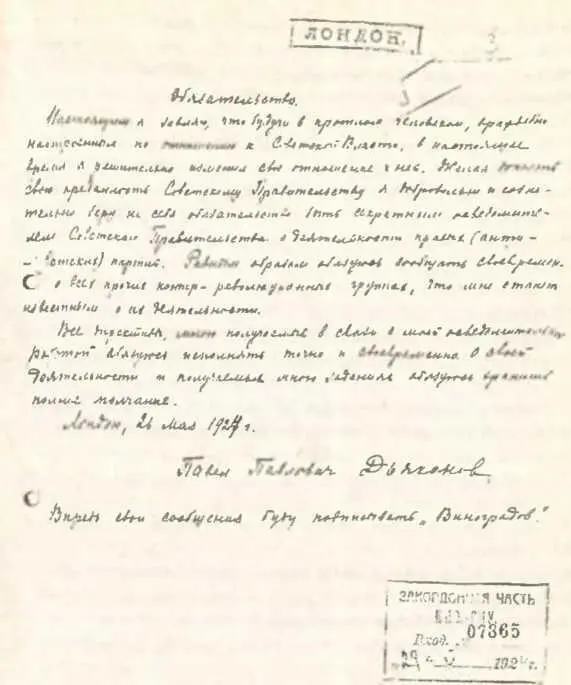 ЛОНДОН.
Обязательство.
Настоящим я заявляю, что будучи в прошлом человеком, враждебно
настроенным по отношению к Советской Власти, в настоящее
время я решительно изменил свое отношение к ней. Желая доказать
свою преданность Советскому Правительству я добровольно и созна-
тельно беру на себя обязательство быть секретным осведомите-
лем Советского Правительства о деятельности правых (анти-
советских) партий. Равным образом обязуюсь сообщать своевремен.
о всех прочих контр-революционных группах, что мне станет
известным о их деятельности.
Все директивы, мною получаемые в связи с моей осведомительной
работой обязуюсь исполнять точно и своевременно. О своей
деятельности и получаемых мною заданиях обязуюсь хранить
полное молчание.
Лондон, 26 Мая 1924 г.
Павел Павлович Дьяконов.
Впредь свои сообщения буду подписывать „Виноградов".
ЗАКОРДОННАЯ ЧАСТЬ
07865
Вход.
29 192 г.